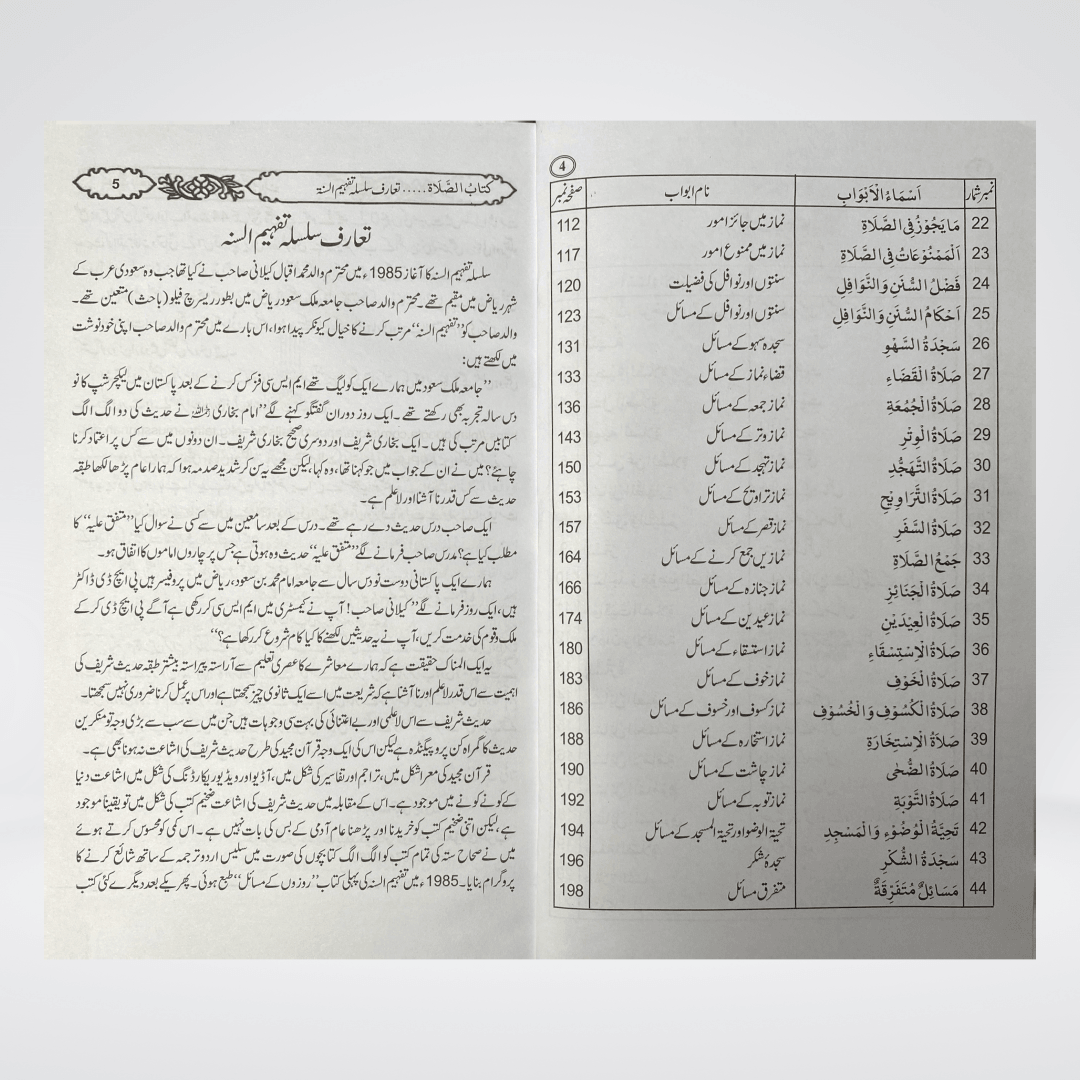 4
نمبر شمار اَسْمَاءُ الْاَبْوَاب نام ابواب صفحہ نمبر
22 مَا يَجُوْزُ فِى الصَّلَاةِ نماز میں جائز امور 112
23 اَلْمَمْنُوْعَاتُ فِى الصَّلَاةِ نماز میں ممنوع امور 117
24 فَضْلُ السُّنَنِ وَالنَّوَافِلِ سنتوں اور نوافل کی فضیلت 120
25 اَحْكَامُ السُّنَنِ وَالنَّوَافِلِ سنتوں اور نوافل کے مسائل 123
26 سَجْدَةُ السَّهْوِ سجدہ سہو کے مسائل 131
27 صَلَاةُ الْقَضَاءِ قضاء نماز کے مسائل 133
28 صَلَاةُ الْجُمُعَةِ نماز جمعہ کے مسائل 136
29 صَلَاةُ الْوِتْرِ نماز وتر کے مسائل 143
30 صَلَاةُ التَّهَجُّدِ نماز تہجد کے مسائل 150
31 صَلَاةُ التَّرَاوِيْحِ نماز تراویح کے مسائل 153
32 صَلَاةُ السَّفَرِ نماز قصر کے مسائل 157
33 جَمْعُ الصَّلَاةِ نمازیں جمع کرنے کے مسائل 164
34 صَلَاةُ الْجَنَائِزِ نماز جنازہ کے مسائل 166
35 صَلَاةُ الْعِيْدَيْنِ نماز عیدین کے مسائل 174
36 صَلَاةُ الْاِسْتِسْقَاءِ نماز استسقاء کے مسائل 180
37 صَلَاةُ الْخَوْفِ نماز خوف کے مسائل 183
38 صَلَاةُ الْكُسُوْفِ وَالْخُسُوْفِ نماز کسوف اور خسوف کے مسائل 186
39 صَلَاةُ الْاِسْتِخَارَةِ نماز استخارہ کے مسائل 188
40 صَلَاةُ الضُّحٰى نماز چاشت کے مسائل 190
41 صَلَاةُ التَّوْبَةِ نماز توبہ کے مسائل 192
42 تَحِيَّةُ الْوُضُوْءِ وَالْمَسْجِدِ تحیۃ الوضو اور تحیۃ المسجد کے مسائل 194
43 سَجْدَةُ الشُّكْرِ سجدۂ شکر 196
44 مَسَائِلٌ مُتَفَرِّقَةٌ متفرق مسائل 198
کتابُ الصَّلَاة ..... تعارف سلسلہ تفہیم السنۃ 5
تعارف سلسلہ تفہیم السنہ
سلسلہ تفہیم السنہ کا آغاز 1985ء میں محترم والد محمد اقبال کیلانی صاحب نے کیا تھا جب وہ سعودی عرب کے
شہر ریاض میں مقیم تھے۔ محترم والد صاحب جامعہ ملک سعود ریاض میں بطور ریسرچ فیلو (باحث) متعین تھے۔
والد صاحب کو ’’تفہیم السنہ‘‘ مرتب کرنے کا خیال کیونکر پیدا ہوا، اس بارے میں محترم والد صاحب اپنی خود نوشت
میں لکھتے ہیں:
’’جامعہ ملک سعود میں ہمارے ایک کولیگ تھے ایم ایس سی فزکس کرنے کے بعد پاکستان میں لیکچرشپ کا نو
دس سالہ تجربہ بھی رکھتے تھے۔ ایک روز دوران گفتگو کہنے لگے ’’امام بخاری رحمہ اللہ نے حدیث کی دو الگ الگ
کتابیں مرتب کی ہیں۔ ایک بخاری شریف اور دوسری صحیح بخاری شریف۔ ان دونوں میں سے کس پر اعتماد کرنا
چاہئے؟ میں نے ان کے جواب میں جو کہنا تھا، وہ کہا، لیکن مجھے یہ سن کر شدید صدمہ ہوا کہ ہمارا عام پڑھا لکھا طبقہ
حدیث سے کس قدر نا آشنا اور لاعلم ہے۔
ایک صاحب درس حدیث دے رہے تھے۔ درس کے بعد سامعین میں سے کسی نے سوال کیا ’’متفق علیہ‘‘ کا
مطلب کیا ہے؟ مدرس صاحب فرمانے لگے ’’متفق علیہ‘‘ حدیث وہ ہوتی ہے جس پر چاروں اماموں کا اتفاق ہو۔
ہمارے ایک پاکستانی دوست نو دس سال سے جامعہ امام محمد بن سعود، ریاض میں پروفیسر ہیں پی ایچ ڈی ڈاکٹر
ہیں، ایک روز فرمانے لگے ’’کیلانی صاحب! آپ نے کیمسٹری میں ایم ایس سی کر رکھی ہے آگے پی ایچ ڈی کر کے
ملک وقوم کی خدمت کریں، آپ نے یہ حدیثیں لکھنے کا کیا کام شروع کر رکھا ہے؟‘‘
یہ ایک المناک حقیقت ہے کہ ہمارے معاشرے کا عصری تعلیم سے آراستہ پیراستہ بیشتر طبقہ حدیث شریف کی
اہمیت سے اس قدر لاعلم اور نا آشنا ہے کہ شریعت میں اسے ایک ثانوی چیز سمجھتا ہے اور اس پر عمل کرنا ضروری نہیں سمجھتا۔
حدیث شریف سے اس لاعلمی اور بے اعتنائی کی بہت سی وجوہات ہیں جن میں سے سب سے بڑی وجہ تو منکرین
حدیث کا گمراہ کن پروپیگنڈہ ہے لیکن اس کی ایک وجہ قرآن مجید کی طرح حدیث شریف کی اشاعت نہ ہونا بھی ہے۔
قرآن مجید کی معرا شکل میں، تراجم اور تفاسیر کی شکل میں، آڈیو اور ویڈیو ریکارڈنگ کی شکل میں اشاعت دنیا
کے کونے کونے میں موجود ہے۔ اس کے مقابلہ میں حدیث شریف کی اشاعت ضخیم کتب کی شکل میں تو یقیناً موجود
ہے، لیکن اتنی ضخیم کتب کو خریدنا اور پڑھنا عام آدمی کے بس کی بات نہیں ہے۔ اس کمی کو محسوس کرتے ہوئے
میں نے صحاح ستہ کی تمام کتب کو الگ الگ کتابچوں کی صورت میں سلیس اردو ترجمہ کے ساتھ شائع کرنے کا
پروگرام بنایا۔ 1985ء میں تفہیم السنہ کی پہلی کتاب ’’روزوں کے مسائل‘‘ طبع ہوئی۔ پھر یکے بعد دیگرے کئی کتب